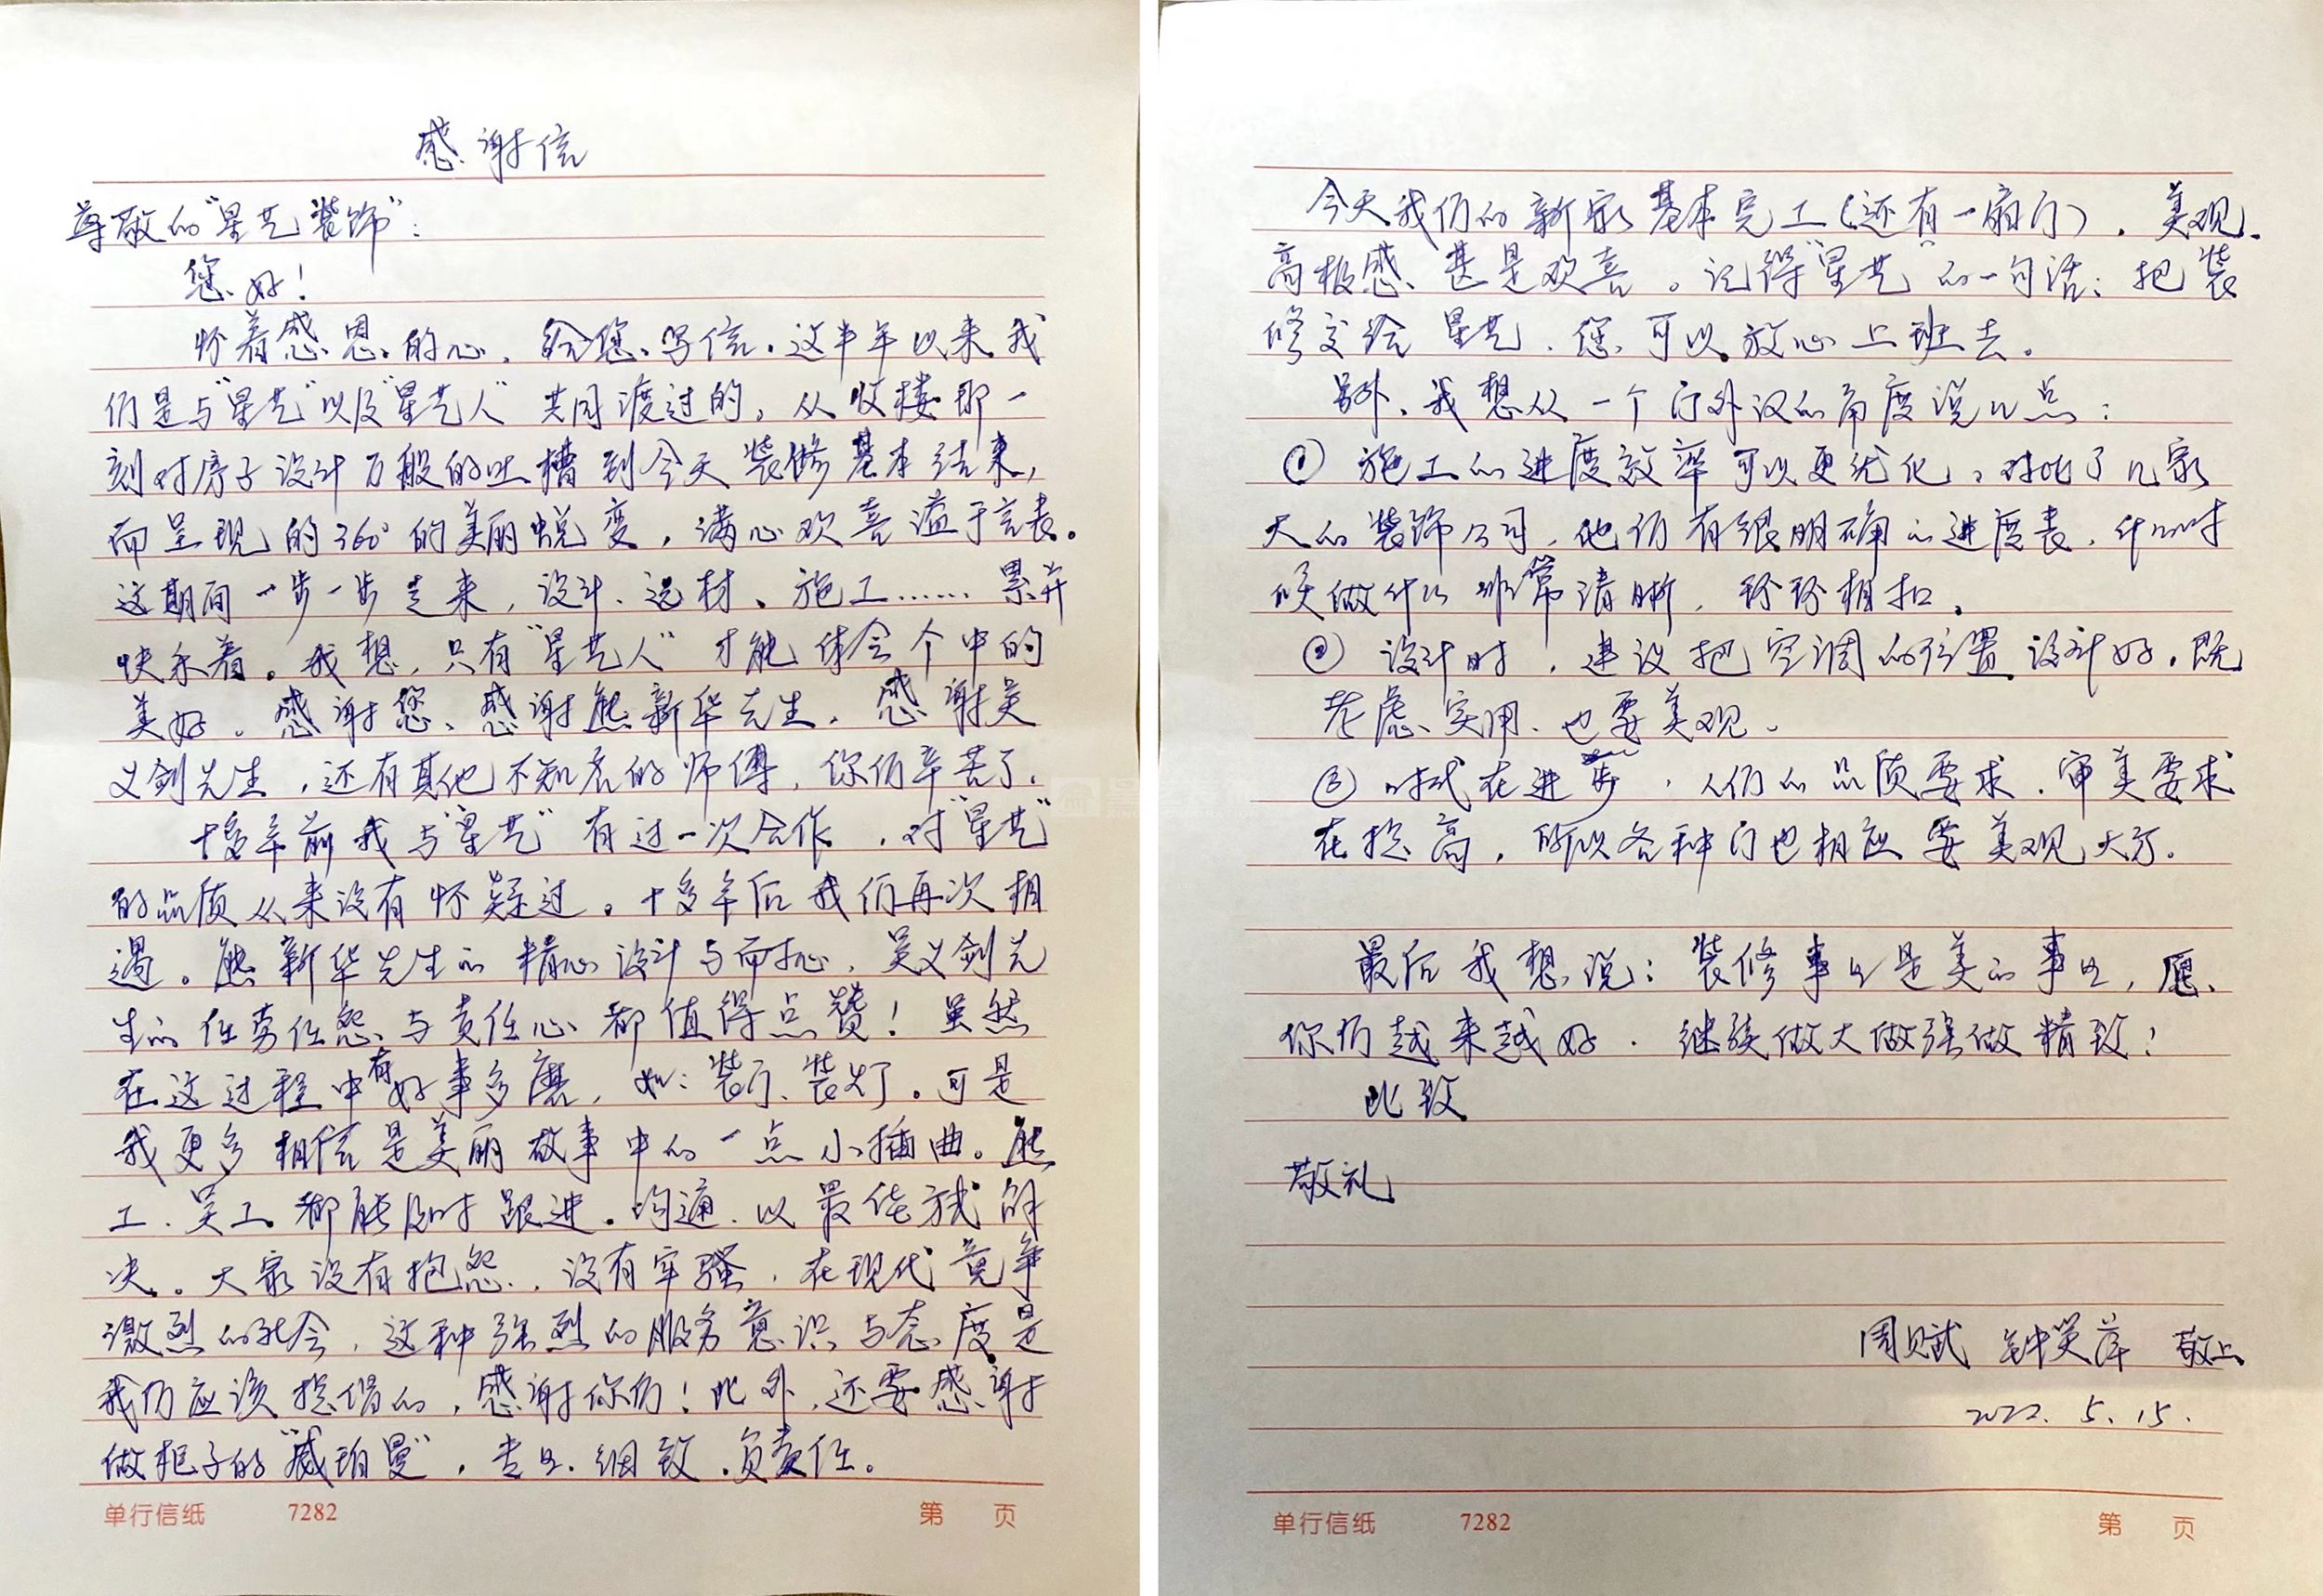 感谢信
尊敬的“星艺装饰”:
您好!
怀着感恩的心,给您写信。这半年以来我
们是与“星艺”以及“星艺人”共同渡过的。从收楼那一
刻对房子设计万般的吐槽到今天装修基本结束,
而呈现的360°的美丽蜕变,满心欢喜溢于言表。
这期间一步一步走来,设计、选材、施工……累并
快乐着。我想,只有“星艺人”才能体会个中的
美好。感谢您、感谢熊新华先生,感谢吴
义剑先生,还有其他不知名的师傅,你们辛苦了。
十多年前我与“星艺”有过一次合作,对“星艺”
的品质从来没有怀疑过。十多年后我们再次相
遇。熊新华先生的精心设计与耐心,吴义剑先
生的任劳任怨与责任心都值得点赞!虽然
在这过程中有好事多磨,如:装门、装灯。可是
我更多相信是美丽故事中的一点小插曲。熊
工、吴工都能及时跟进。沟通,以最佳方式解
决。大家没有抱怨,没有牢骚,在现代竞争
激烈的社会,这种强烈的服务意识与态度是
我们应该提倡的,感谢你们!此外,还要感谢
做柜子的“威珀曼”,专业、细致、负责任。
单行信纸 7282 第 页
今天我们的新家基本完工(还有一扇门),美观、
高极感、甚是欢喜。记得“星艺”的一句话:把装
修交给星艺,您可以放心上班去。
另外,我想从一个门外汉的角度说几点:
① 施工的进度效率可以更优化,对比了几家
大的装饰公司,他们有很明确的进度表,什么时
候做什么非常清晰,环环相扣。
② 设计时,建议把空调的位置设计好,既
考虑实用,也要美观。
③ 时代在进步,人们的品质要求、审美要求
在提高,所以各种门也相应要美观大方。
最后我想说:装修事业是美的事业,愿
你们越来越好,继续做大做强做精致!
此致
敬礼
周贝斌 钟笑萍 敬上
2022. 5. 15.
单行信纸 7282 第 页